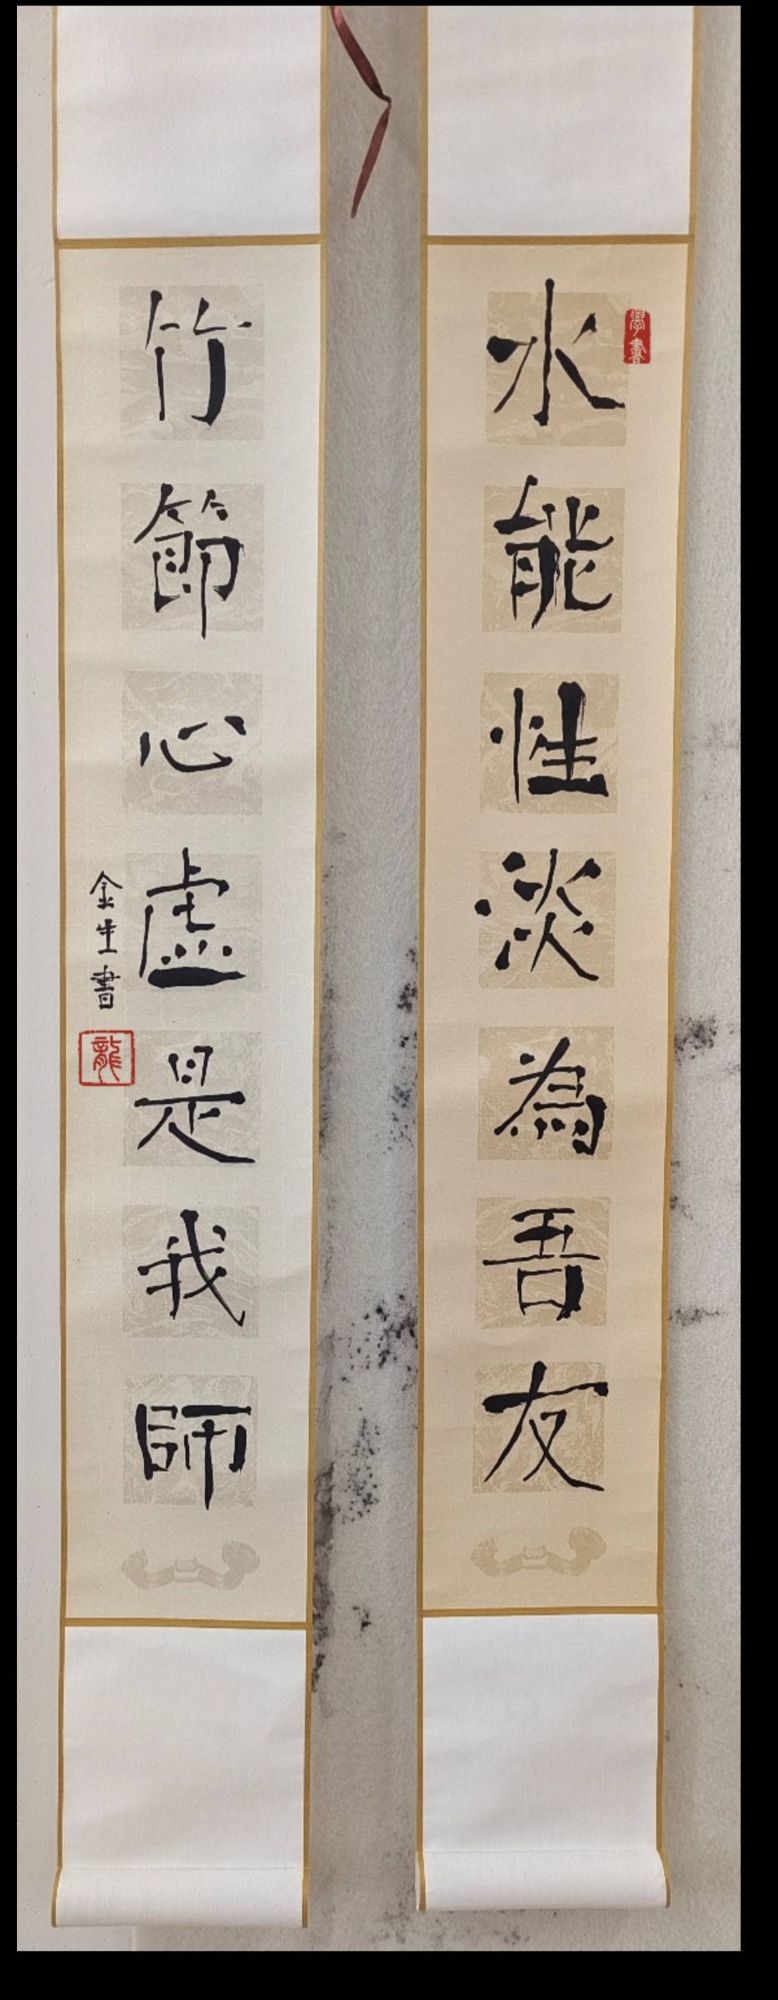 水能性淡為吾友
竹節心虛是我師
金生書
學書
龍